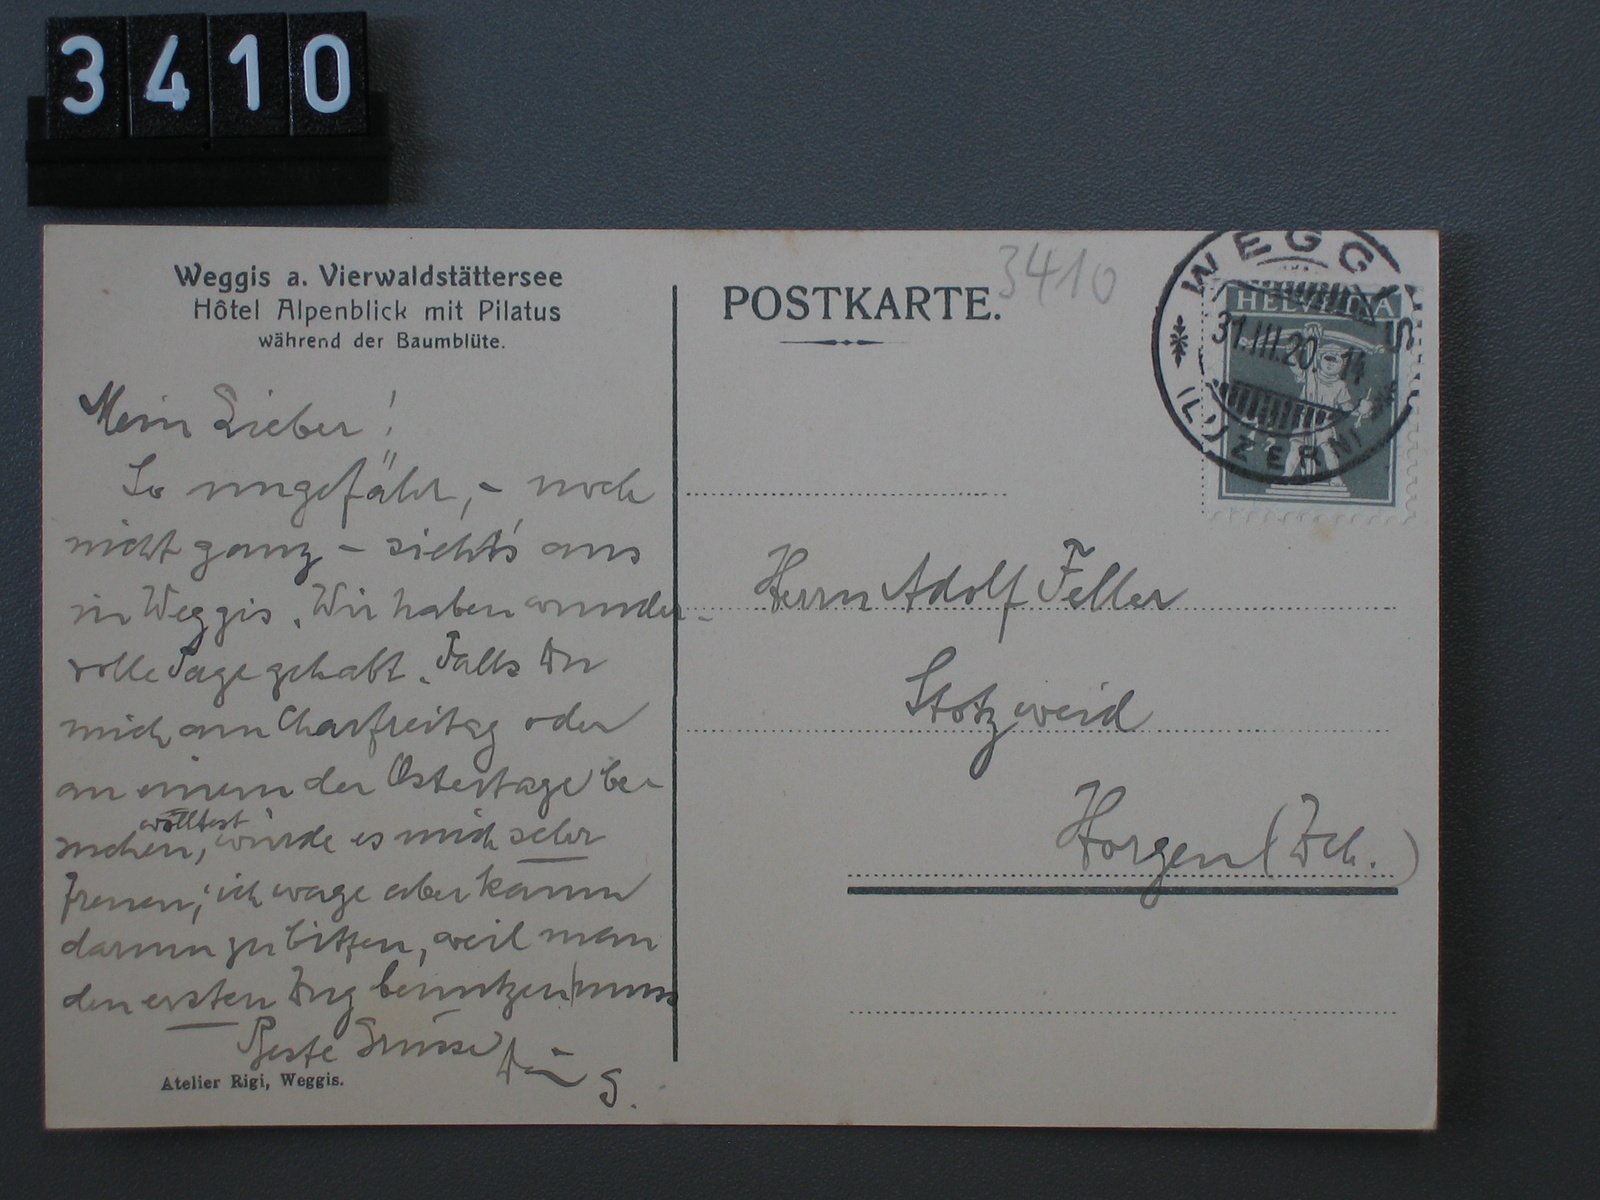 3410
Weggis a. Vierwaldstättersee
Hôtel Alpenblick mit Pilatus
während der Baumblüte.
Mein Lieber!
So ungefähr, – noch
nicht ganz – sieht's aus
in Weggis. Wir haben wunder-
volle Tage gehabt. Falls Du
mich am Charfreitag oder
an einem der Ostertage be-
suchen wolltest, würde es mich sehr
freuen; ich wage aber kaum
darum zu bitten, weil man
den ersten Zug benutzen muss
Beste Grüsse
S.
Atelier Rigi, Weggis.
POSTKARTE.
3410
WEGGIS
HELVETIA
31.III.20.-14
(LUZERN)
Herrn Adolf Feller
Stotzweid
Horgen (Zch.)